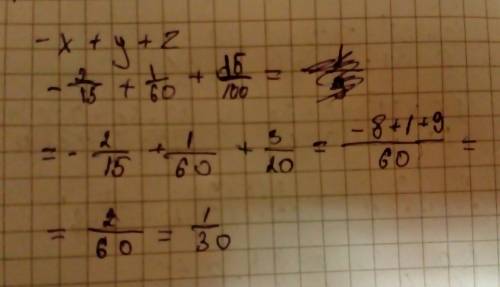 -x + y + z
- 2/15 + 1/60 + 15/100 =
= - 2/15 + 1/60 + 3/20 = (-8+1+9)/60 =
= 2/60 = 1/30